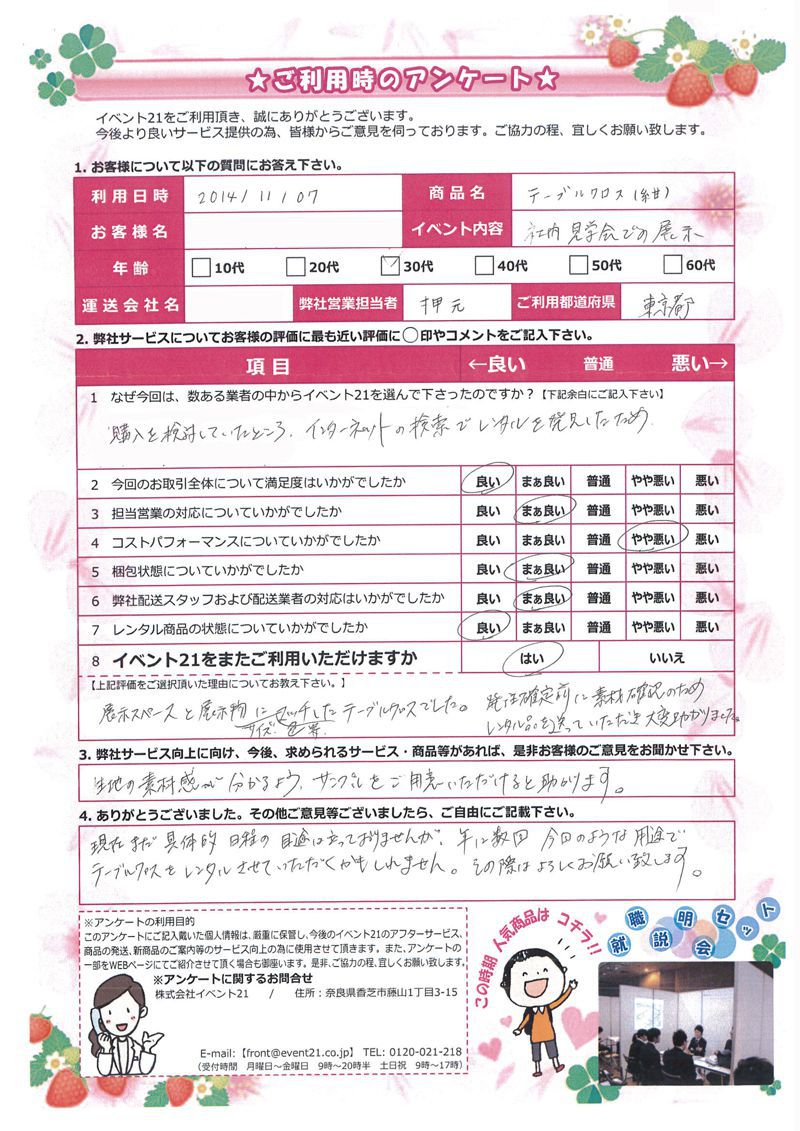 ★ご利用時のアンケート★
イベント21をご利用頂き、誠にありがとうございます。
今後より良いサービス提供の為、皆様からご意見を伺っております。ご協力の程、宜しくお願い致します。
1. お客様について以下の質問にお答え下さい。
利用日時 2014/11/07 商品名 テーブルクロス(紺)
お客様名 イベント内容 社内見学会での展示
年齢 10代 20代 30代 40代 50代 60代
運送会社名 弊社営業担当者 押元 ご利用都道府県 東京都
2. 弊社サービスについてお客様の評価に最も近い評価に○印やコメントをご記入下さい。
項目 ←良い 普通 悪い→
1 なぜ今回は、数ある業者の中からイベント21を選んで下さったのですか?【下記余白にご記入下さい】
購入を検討していたところ、インターネットの検索でレンタルを発見したため
2 今回のお取引全体について満足度はいかがでしたか 良い まぁ良い 普通 やや悪い 悪い
3 担当営業の対応についていかがでしたか 良い まぁ良い 普通 やや悪い 悪い
4 コストパフォーマンスについていかがでしたか 良い まぁ良い 普通 やや悪い 悪い
5 梱包状態についていかがでしたか 良い まぁ良い 普通 やや悪い 悪い
6 弊社配送スタッフおよび配送業者の対応はいかがでしたか 良い まぁ良い 普通 やや悪い 悪い
7 レンタル商品の状態についていかがでしたか 良い まぁ良い 普通 やや悪い 悪い
8 イベント21をまたご利用いただけますか はい いいえ
【上記評価をご選択頂いた理由についてお教え下さい。】
展示スペースと展示物にマッチしたテーブルクロスでした。
サイズ・色
発注確定前に素材確認のため
レンタル品を送っていただき大変助かりました。
3. 弊社サービス向上に向け、今後、求められるサービス・商品等があれば、是非お客様のご意見をお聞かせ下さい。
生地の素材感が分かるよう、サンプルをご用意いただけると助かります。
4. ありがとうございました。その他ご意見等ございましたら、ご自由にご記載下さい。
現在まだ具体的日程の目途は立っておりませんが、年に数回 今回のような用途で
テーブルクロスをレンタルさせていただくかもしれません。その際はよろしくお願い致します。
※アンケートの利用目的
このアンケートにご記入戴いた個人情報は、厳重に保管し、今後のイベント21のアフターサービス、
商品の発送、新商品のご案内等のサービス向上の為に使用させて頂きます。また、アンケートの
一部をWEBページにてご紹介させて頂く場合も御座います。是非、ご協力の程、宜しくお願い致します。
※アンケートに関するお問合せ
株式会社イベント21 / 住所:奈良県香芝市藤山1丁目3-15
E-mail:【front@event21.co.jp】 TEL: 0120-021-218
(受付時間 月曜日~金曜日 9時~20時半 土日祝 9時~17時)
この時期 人気商品は コチラ!!
就職説明会セット